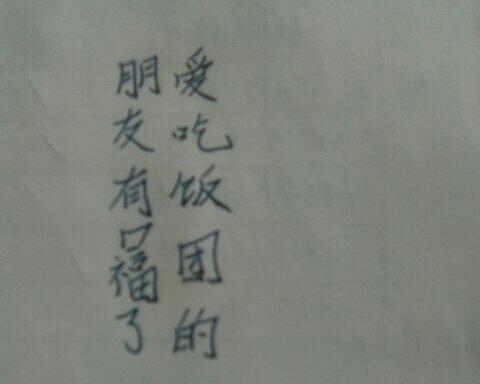 爱吃饭团的
朋友有口福了